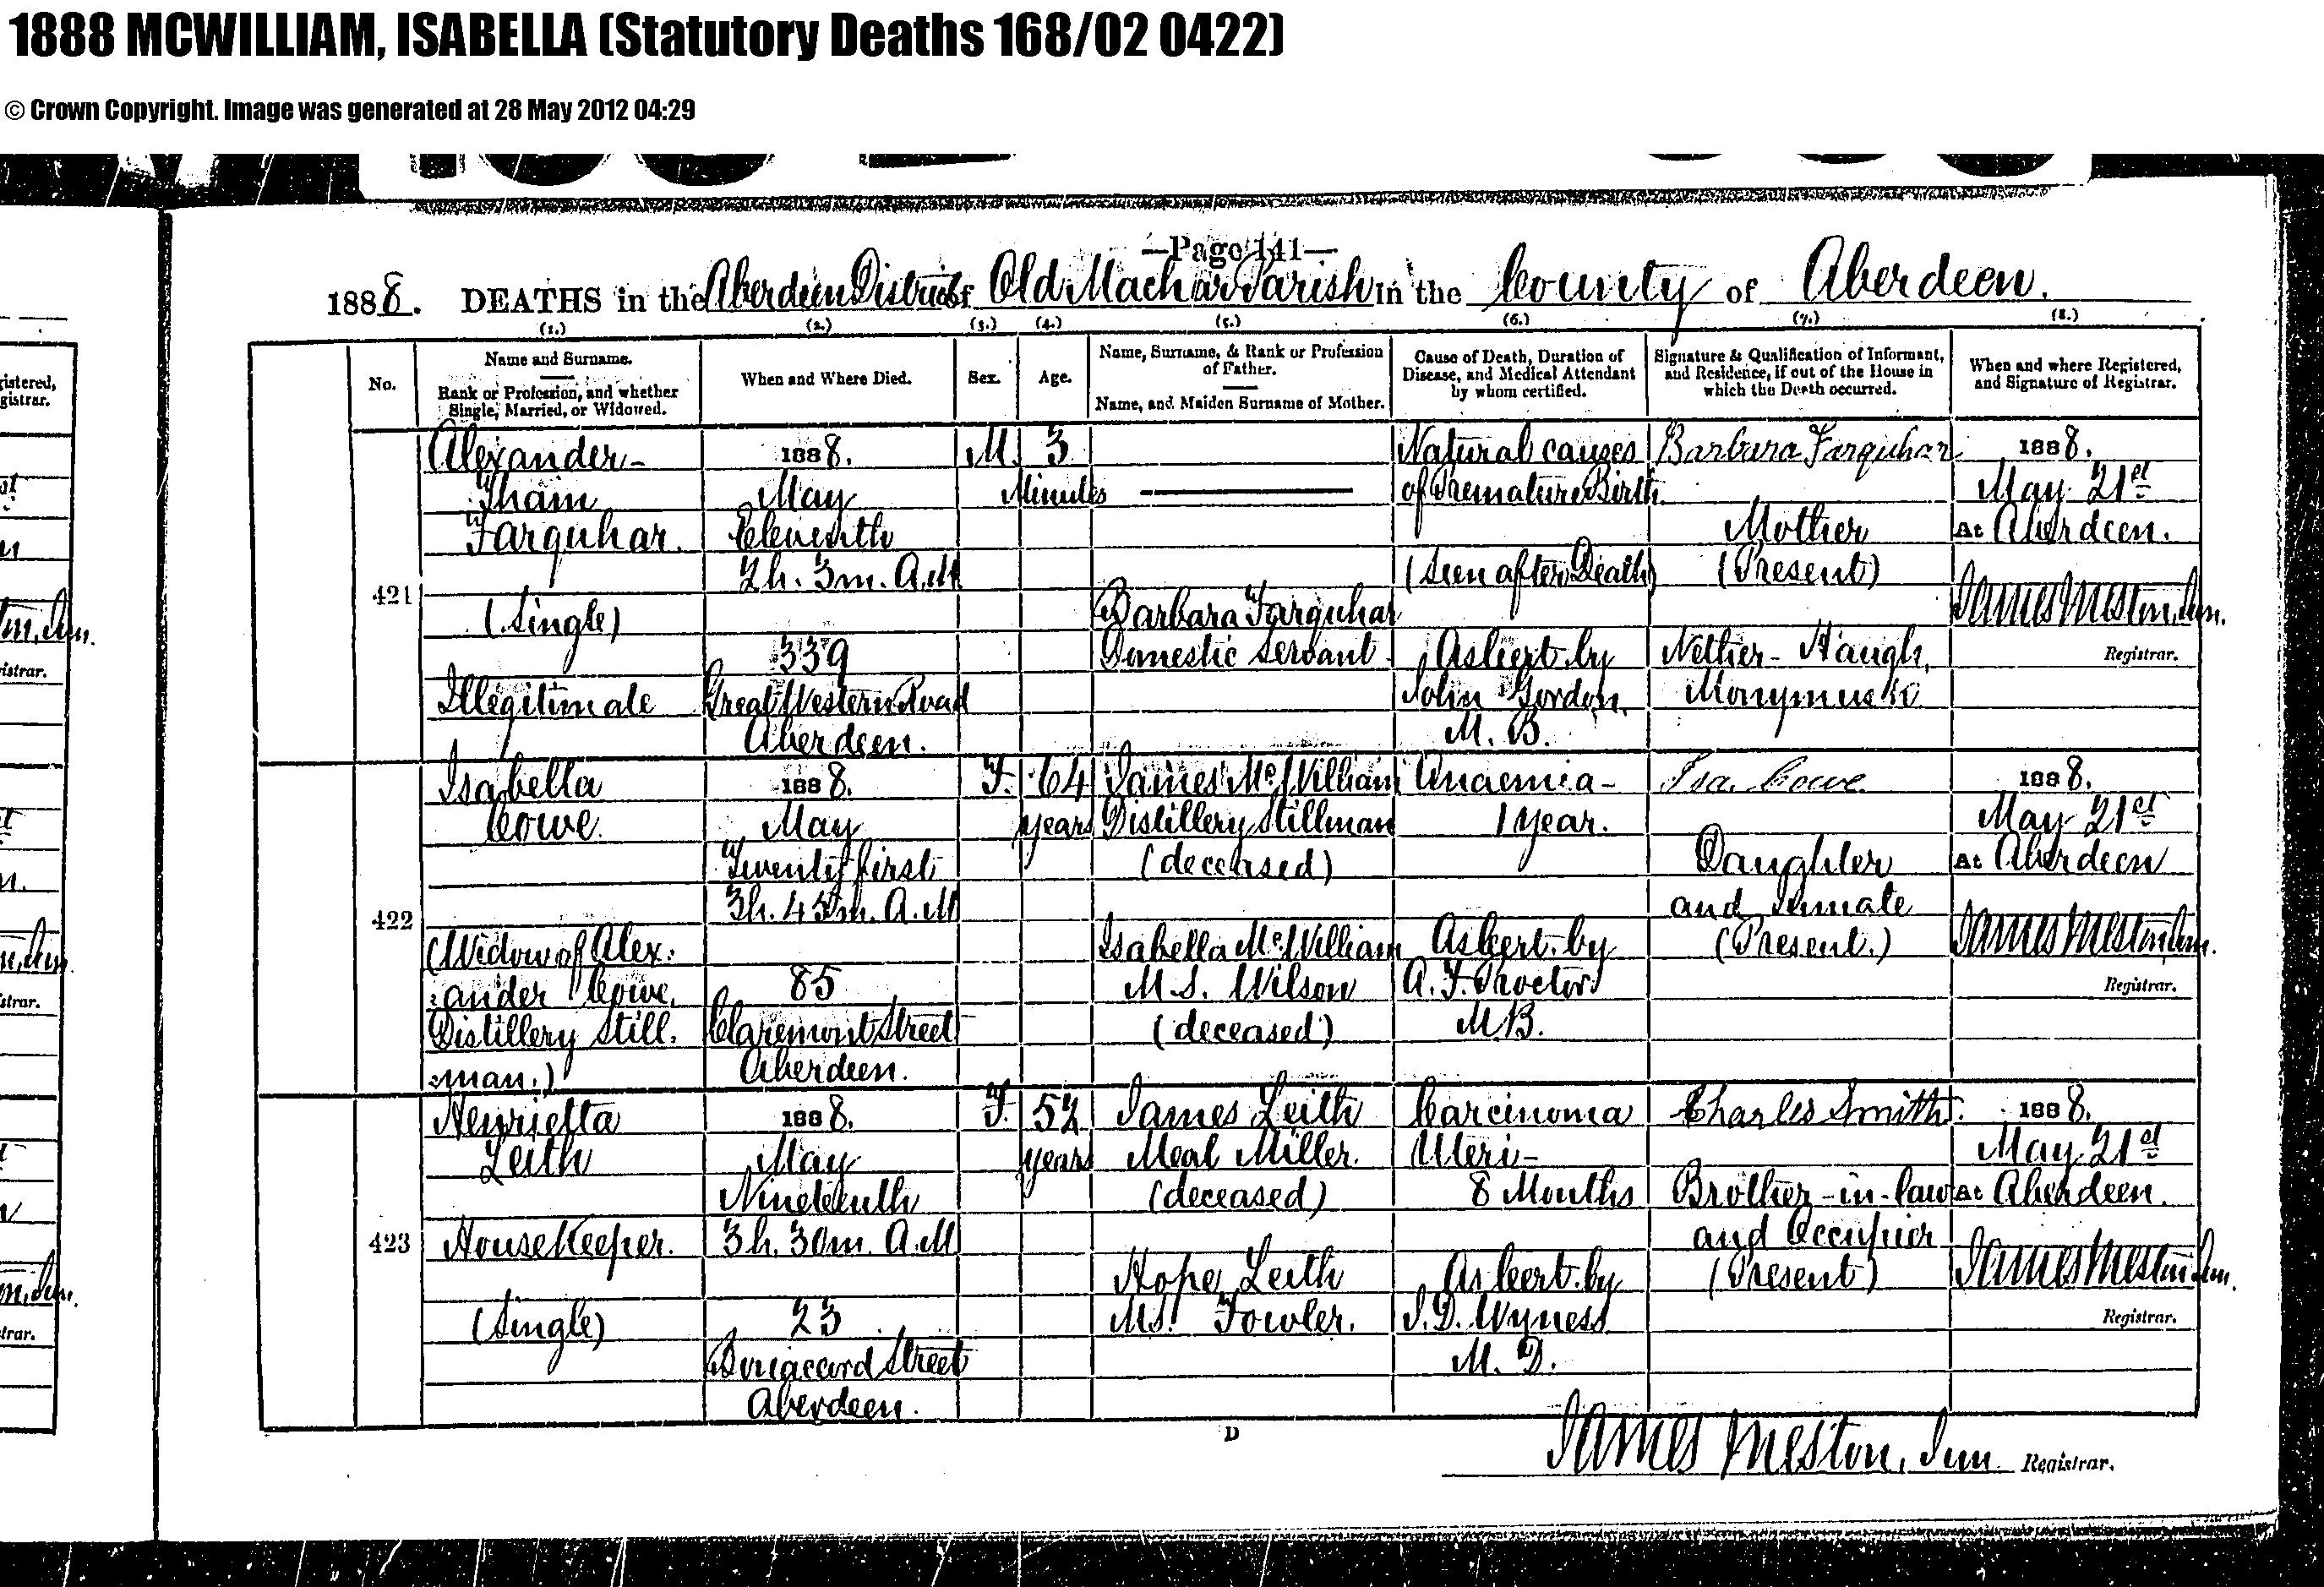 1888 MCWILLIAM, ISABELLA (Statutory Deaths 168/02 0422)
© Crown Copyright. Image was generated at 28 May 2012 04:29
—Page 141—
1888. DEATHS in the Aberdeen District of Old Machar Parish in the County of Aberdeen.
(1.) (2.) (3.) (4.) (5.) (6.) (7.) (8.)
No.
Name and Surname.
Rank or Profession, and whether
Single, Married, or Widowed.
When and Where Died.
Sex.
Age.
Name, Surname, & Rank or Profession
of Father.
Name, and Maiden Surname of Mother.
Cause of Death, Duration of
Disease, and Medical Attendant
by whom certified.
Signature & Qualification of Informant,
and Residence, if out of the House in
which the Death occurred.
When and where Registered,
and Signature of Registrar.
421
Alexander-
Tham
Farquhar.
(Single)
Illegitimate
1888.
May
Eleventh
2h. 3m. A.M
339
Great Western Road
Aberdeen.
M.
3
Minutes
Barbara Farquhar
Domestic Servant
Natural causes
of Premature Birth
(Seen after Death)
As Cert. by
John Gordon.
M. B.
Barbara Farquhar
Mother
(Present)
Nether-Haugh,
Monymusk.
1888.
May 21st
At Aberdeen.
James Meston, Jun.
Registrar.
422
Isabella
Cowe.
(Widow of Alex:
:ander Cowe,
Distillery Still.
:man.)
1888.
May
Twenty first
3h. 45m. A.M
85
Claremont Street
Aberdeen.
F.
64
years
James McWilliam
Distillery Stillman
(deceased)
Isabella McWilliam
M.S. Wilson
(deceased)
Anaemia-
1 year.
As Cert. by
A. F. Proctor
M.B.
Isa. Cowe.
Daughter
and Inmate
(Present.)
1888.
May 21st
At Aberdeen
James Meston Jun.
Registrar.
423
Henrietta
Leith
HouseKeeper.
(Single)
1888.
May
Nineteenth
3h. 30m. A.M
23
Street
Aberdeen.
F.
52
years
James Leith
Meal Miller.
(deceased)
Hope Leith
M.S. Fowler.
Carcinoma
Uteri-
8 Months
As Cert. by
J. D. Wyness
M. D.
Charles Smith.
Brother-in-law
and Occupier
(Present)
1888.
May 21st
At Aberdeen.
James Meston Jun.
Registrar.
D
James Meston, Jun. Registrar.